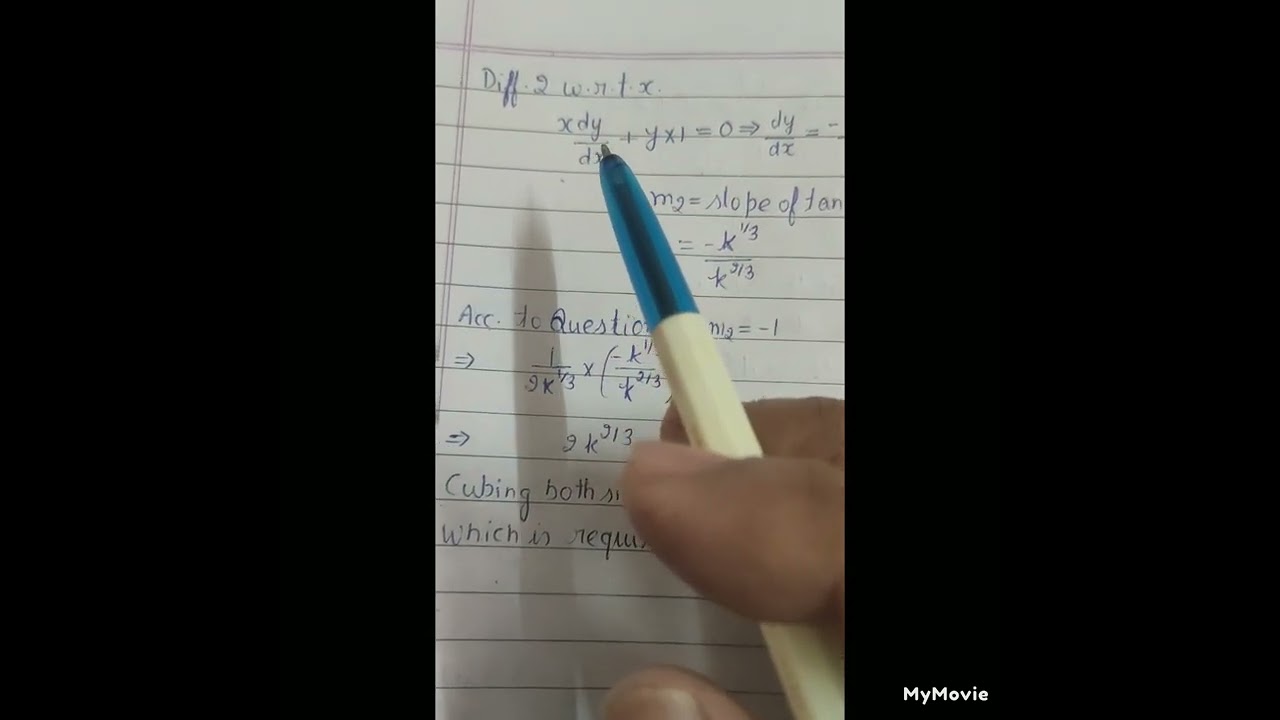 Diff. 2 w.r.t. x.
x dy/dx + y×1 = 0 ⇒ dy/dx = -
m₂ = slope of tan
= -k^1/3 / k^2/3
Acc. to Question m₂ = -1
⇒ 1/2k^1/3 × (-k^1/ / k^2/3
⇒ 2k^2/3
Cubing both
which is
MyMovie